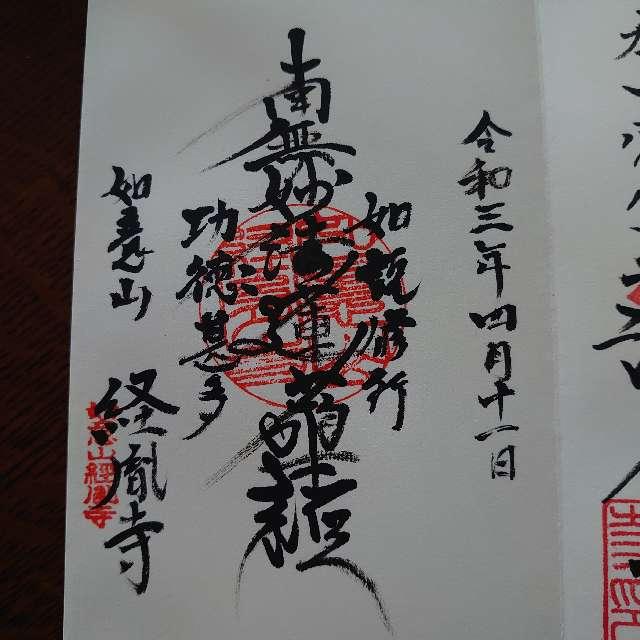 令和三年四月十一日
如説修行
南無妙法蓮華経
功徳甚多
如意山
経胤寺